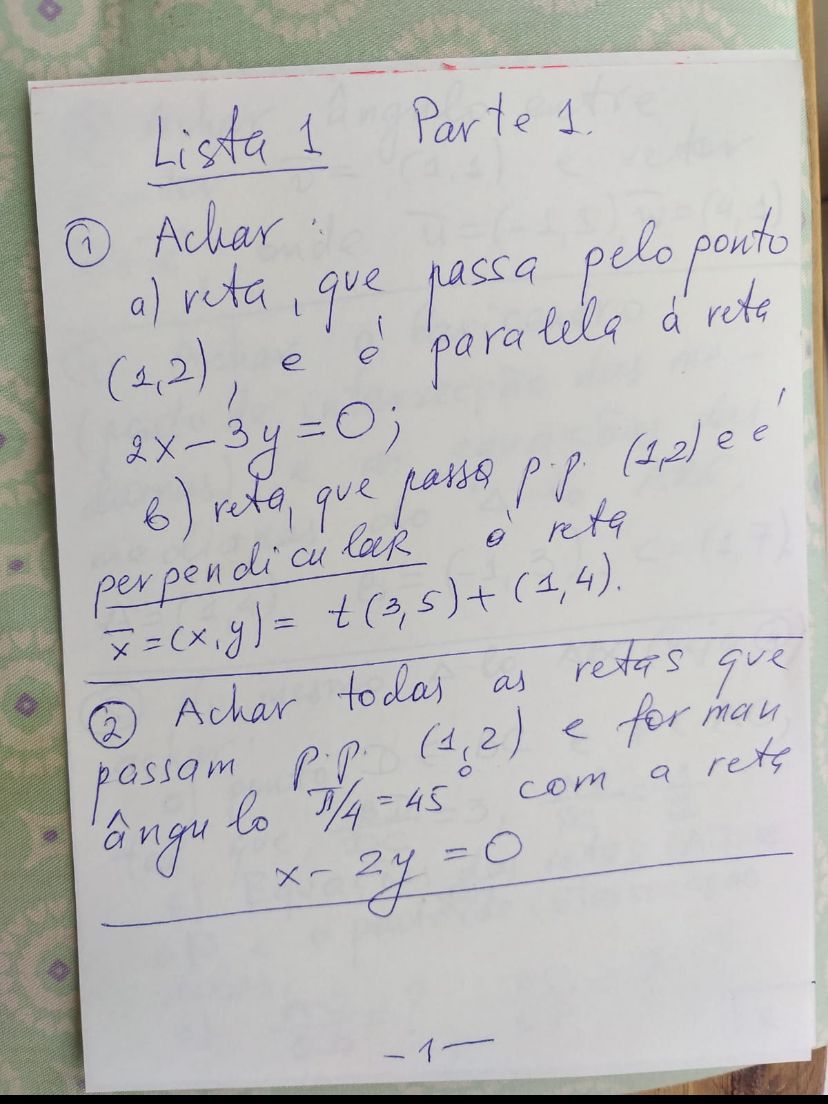 Lista 1 Parte 1.
① Achar:
a) reta, que passa pelo ponto
(1,2), e é paralela á reta
2x-3y=0;
b) reta, que passa p.p. (1,2) e é
perpendicular á reta
x̄=(x,y)= t(3,5)+(1,4).
② Achar todas as retas que
passam p.p. (1,2) e forman
ângulo π/4=45° com a reta
x-2y=0
-1-